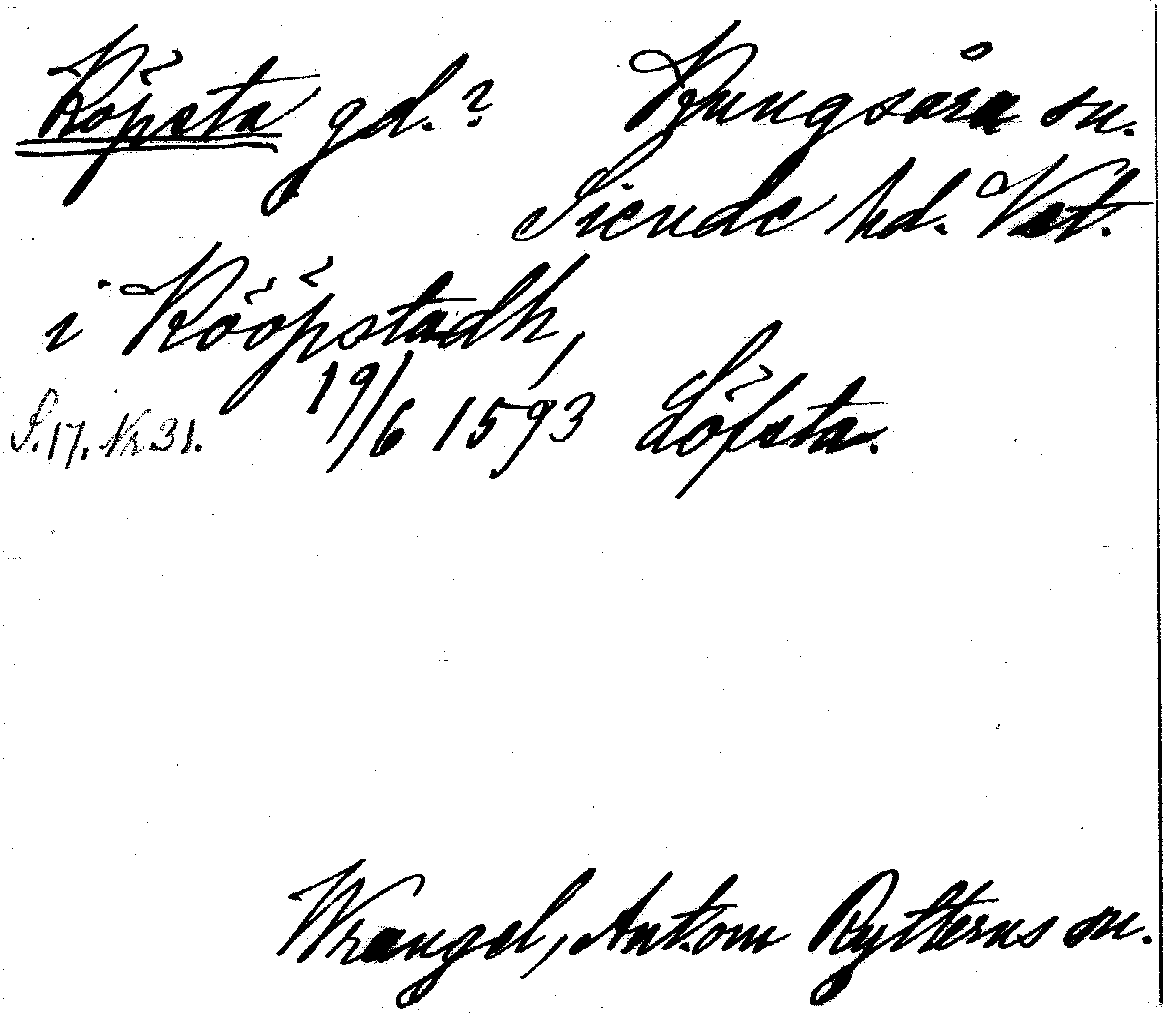 Köpsta gd.? Kungsåra sn.
Siende hd. Vst.
i Kööpstadh,
19/6 1593 Löfsta.
S.17. Nr 31.
Wrangel, Ant. om Rytterns sn.